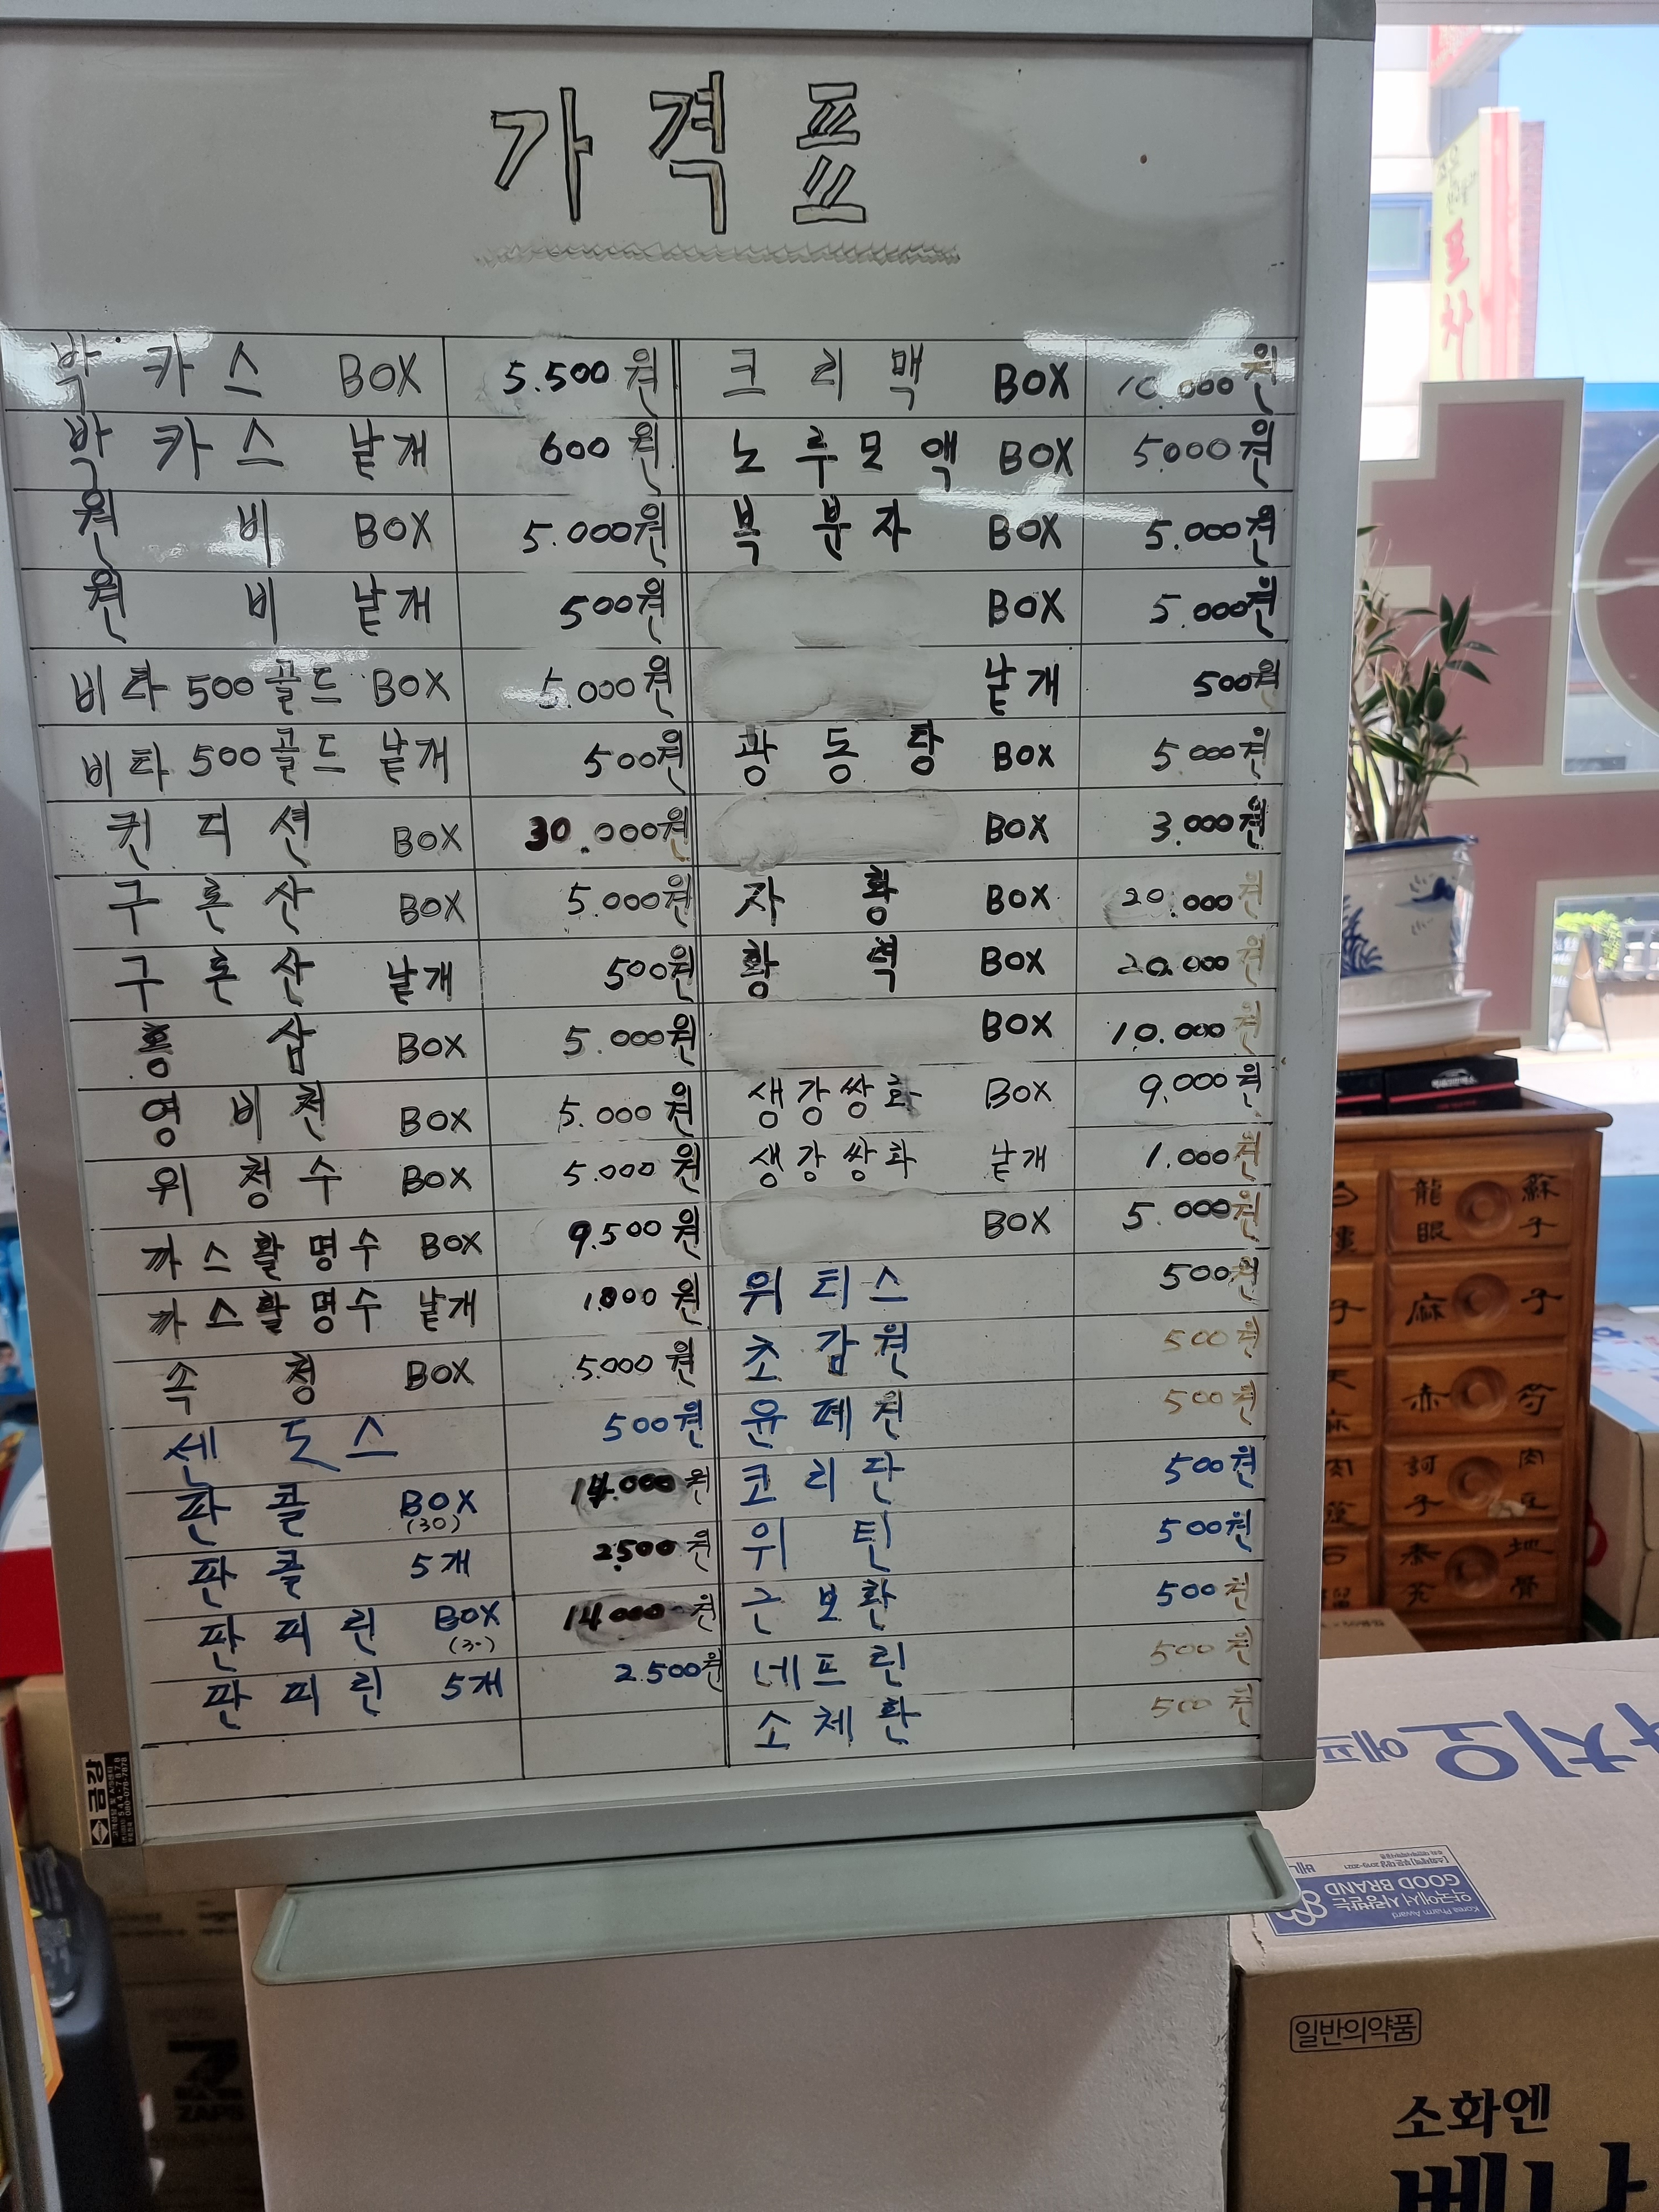 가격표
박카스 BOX 5.500원
박카스 낱개 600원
원비 BOX 5.000원
원비 낱개 500원
비타500골드 BOX 5.000원
비타500골드 낱개 500원
컨디션 BOX 30.000원
구론산 BOX 5.000원
구론산 낱개 500원
홍삼 BOX 5.000원
영비천 BOX 5.000원
위청수 BOX 5.000원
까스활명수 BOX 9.500원
까스활명수 낱개 1.000원
속청 BOX 5.000원
센도스 500원
판콜 BOX (30) 14.000원
판콜 5개 2.500원
판피린 BOX (30) 14.000원
판피린 5개 2.500원
크리맥 BOX 10.000원
노루모액 BOX 5.000원
복분자 BOX 5.000원
BOX 5.000원
낱개 500원
광동탕 BOX 5.000원
BOX 3.000원
자황 BOX 20.000원
황력 BOX 20.000원
BOX 10.000원
생강쌍화 BOX 9.000원
생강쌍화 낱개 1.000원
BOX 5.000원
위티스 500원
초감원 500원
윤폐원 500원
코리단 500원
위틴 500원
근보환 500원
네프린 500원
소체환 500원
금강
포차
龍眼
蘇子
麻子
赤芍
訶子
肉豆
地骨
GOOD BRAND
Korea Pharm Award
ZAPS
일반의약품
소화엔
베나